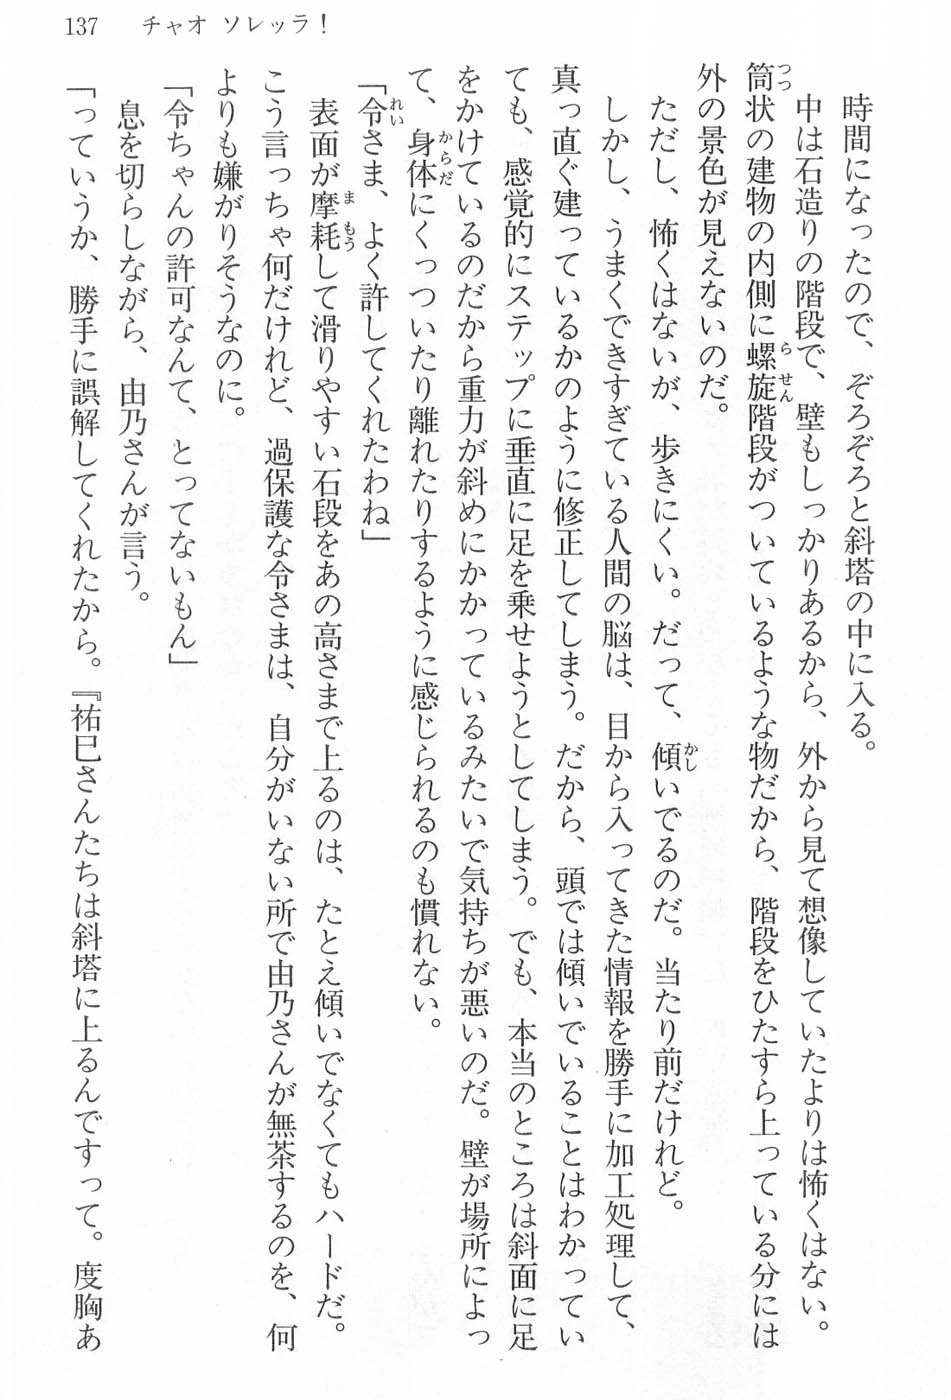 137　チャオ ソレッラ！
　時間になったので、ぞろぞろと斜塔の中に入る。
　中は石造りの階段で、壁もしっかりあるから、外から見て想像していたよりは怖くはない。
筒状の建物の内側に螺旋階段がついているような物だから、階段をひたすら上っている分には
外の景色が見えないのだ。
　ただし、怖くはないが、歩きにくい。だって、傾いでるのだ。当たり前だけれど。
　しかし、うまくできすぎている人間の脳は、目から入ってきた情報を勝手に加工処理して、
真っ直ぐ建っているかのように修正してしまう。だから、頭では傾いでいることはわかってい
ても、感覚的にステップに垂直に足を乗せようとしてしまう。でも、本当のところは斜面に足
をかけているのだから重力が斜めにかかっているみたいで気持ちが悪いのだ。壁が場所によっ
て、身体にくっついたり離れたりするように感じられるのも慣れない。
「令さま、よく許してくれたわね」
　表面が摩耗して滑りやすい石段をあの高さまで上るのは、たとえ傾いでなくてもハードだ。
こう言っちゃ何だけれど、過保護な令さまは、自分がいない所で由乃さんが無茶するのを、何
よりも嫌がりそうなのに。
「令ちゃんの許可なんて、とってないもん」
　息を切らしながら、由乃さんが言う。
「っていうか、勝手に誤解してくれたから。『祐巳さんたちは斜塔に上るんですって。度胸あ